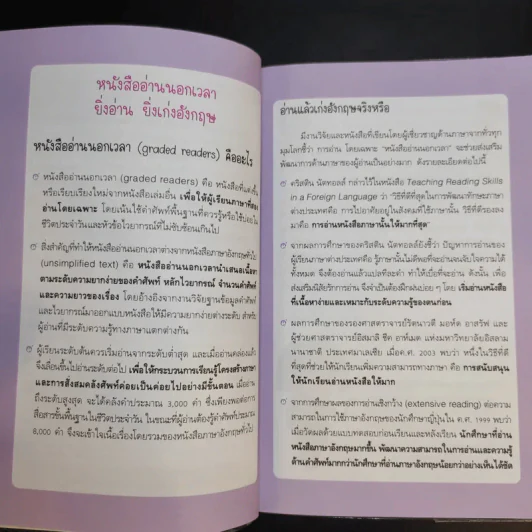 หนังสืออ่านนอกเวลา
ยิ่งอ่าน ยิ่งเก่งอังกฤษ
หนังสืออ่านนอกเวลา (graded readers) คืออะไร
หนังสืออ่านนอกเวลา (graded readers) คือ หนังสือที่แต่งขึ้น
หรือเรียบเรียงใหม่จากหนังสือเล่มอื่น เพื่อให้ผู้เรียนภาษาที่สอง
อ่านโดยเฉพาะ โดยเน้นใช้คำศัพท์พื้นฐานที่ควรรู้หรือใช้บ่อยใน
ชีวิตประจำวันและหัวข้อไวยากรณ์ที่ไม่ซับซ้อนเกินไป
สิ่งสำคัญที่ทำให้หนังสืออ่านนอกเวลาต่างจากหนังสือภาษาอังกฤษทั่วไป
(unsimplified text) คือ หนังสืออ่านนอกเวลานำเสนอเนื้อหา
ตามระดับความยากง่ายของคำศัพท์ หลักไวยากรณ์ จำนวนคำศัพท์
และความยาวของเรื่อง โดยอ้างอิงจากงานวิจัยฐานข้อมูลคำศัพท์
และไวยากรณ์มาออกแบบหนังสือให้มีความยากง่ายต่างระดับ สำหรับ
ผู้อ่านที่มีระดับความรู้ทางภาษาแตกต่างกัน
ผู้เรียนระดับต้นควรเริ่มอ่านจากระดับต่ำสุด และเมื่ออ่านคล่องแล้ว
จึงเลื่อนขึ้นไปอ่านระดับต่อไป เพื่อให้กระบวนการเรียนรู้โครงสร้างภาษา
และการสั่งสมคลังศัพท์ค่อยเป็นค่อยไปอย่างมีขั้นตอน เมื่ออ่าน
ถึงระดับสูงสุด จะได้คลังคำประมาณ 3,000 คำ ซึ่งเพียงพอต่อการ
สื่อสารขั้นพื้นฐานในชีวิตประจำวัน ในขณะที่ผู้อ่านต้องรู้คำศัพท์ประมาณ
8,000 คำ จึงจะเข้าใจเนื้อเรื่องโดยรวมของหนังสือภาษาอังกฤษทั่วไป
อ่านแล้วเก่งอังกฤษจริงหรือ
มีงานวิจัยและหนังสือที่เขียนโดยผู้เชี่ยวชาญด้านภาษาจากทั่วทุก
มุมโลกชี้ว่า การอ่าน โดยเฉพาะ "หนังสืออ่านนอกเวลา" จะช่วยส่งเสริม
พัฒนาการด้านภาษาของผู้อ่านเป็นอย่างมาก ดังรายละเอียดต่อไปนี้
คริสติน นัตทอลล์ กล่าวไว้ในหนังสือ Teaching Reading Skills
in a Foreign Language ว่า "วิธีที่ดีที่สุดในการพัฒนาทักษะภาษา
ต่างประเทศคือ การไปอาศัยอยู่ในสังคมที่ใช้ภาษานั้น วิธีที่ดีรองลง
มาคือ การอ่านหนังสือภาษานั้น ให้มากที่สุด"
จากผลการศึกษาของคริสติน นัตทอลล์ยังชี้ว่า ปัญหาการอ่านของ
ผู้เรียนภาษาต่างประเทศคือ รู้ภาษานั้นไม่ดีพอที่จะอ่านจนจับใจความได้
ทั้งหมด จึงต้องอ่านแล้วแปลทีละคำ ทำให้เบื่อที่จะอ่าน ดังนั้น เพื่อ
ส่งเสริมนิสัยรักการอ่าน จึงจำเป็นต้องฝึกฝนบ่อย ๆ โดย เริ่มอ่านหนังสือ
ที่เนื้อหาง่ายและเหมาะกับระดับความรู้ของตนก่อน
ผลการศึกษาของรองศาสตราจารย์ริตนาวตี มอห์ด อาสรัฟ และ
ผู้ช่วยศาสตราจารย์อิสมาลี ชีค อาห์เมด แห่งมหาวิทยาลัยอิสลาม
นานาชาติ ประเทศมาเลเซีย เมื่อค.ศ. 2003 พบว่า หนึ่งในวิธีที่ดี
ที่สุดที่ช่วยให้นักเรียนเพิ่มความสามารถทางภาษา คือ การสนับสนุน
ให้นักเรียนอ่านหนังสือให้มาก
จากการศึกษาผลของการอ่านเชิงกว้าง (extensive reading) ต่อความ
สามารถในการใช้ภาษาอังกฤษของนักศึกษาญี่ปุ่นใน ค.ศ. 1999 พบว่า
เมื่อวัดผลด้วยแบบทดสอบก่อนเรียนและหลังเรียน นักศึกษาที่อ่าน
หนังสือภาษาอังกฤษมากขึ้น พัฒนาความสามารถในการอ่านและความรู้
ด้านคำศัพท์มากกว่านักศึกษาที่อ่านภาษาอังกฤษน้อยกว่าอย่างเห็นได้ชัด